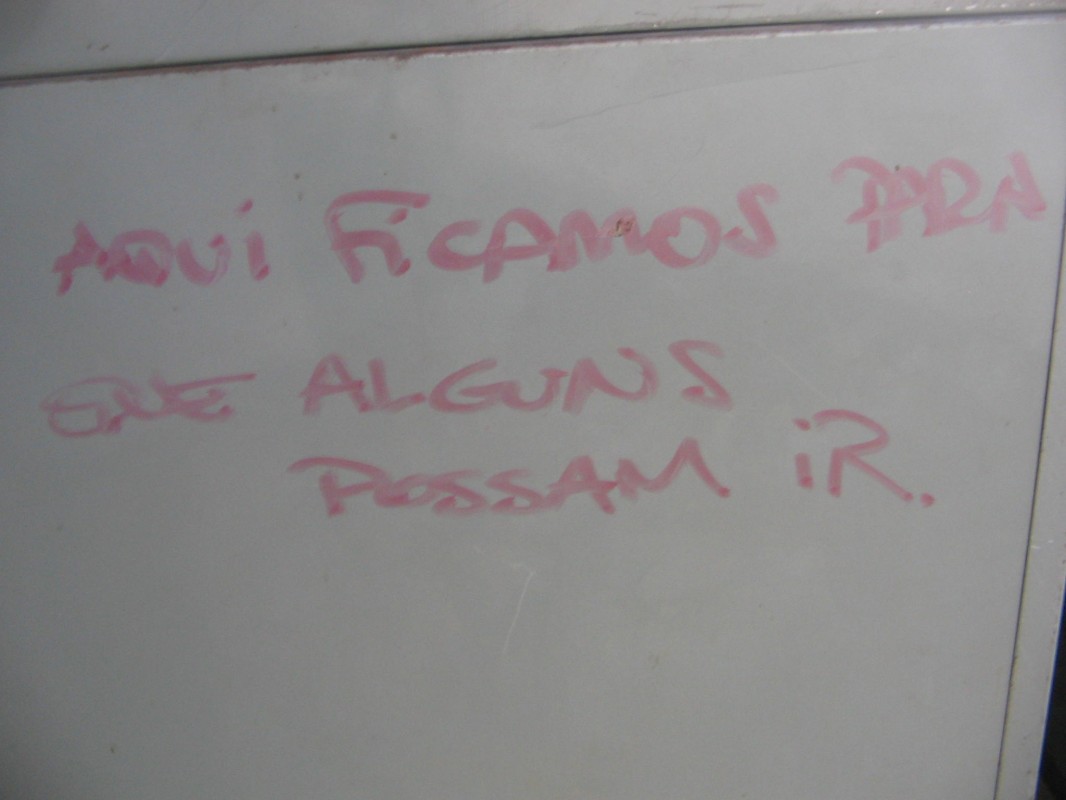 AQUI FICAMOS PARA
QUE ALGUNS
POSSAM IR.